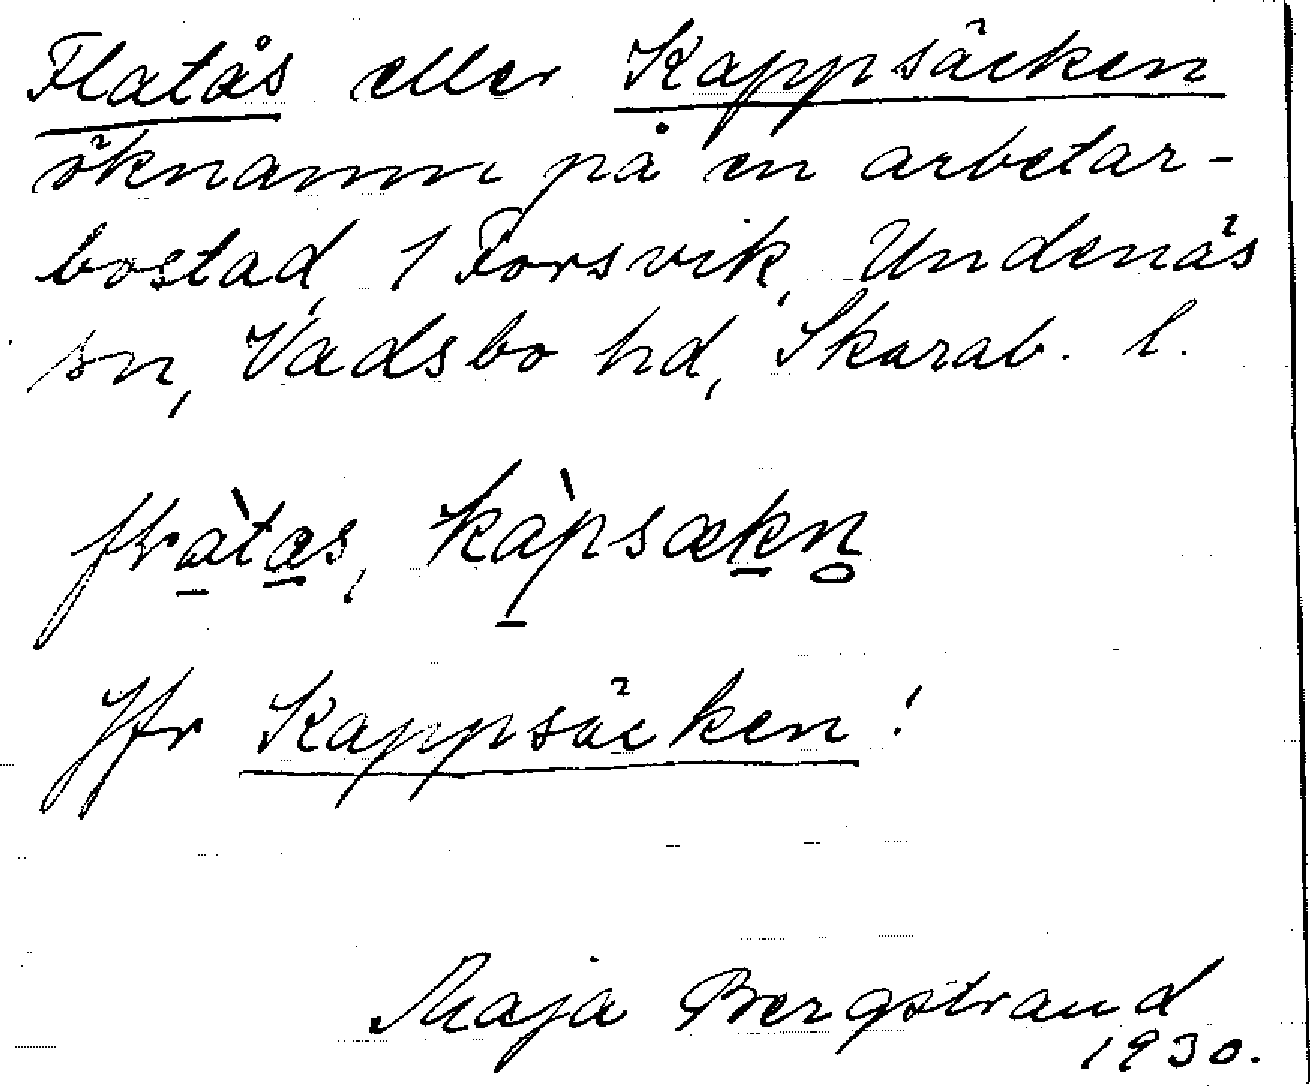 Flatås eller Kappsäcken
öknamn på en arbetar-
bostad, 1 Forsvik, Undenäs
sn, Vadsbo hd, Skarab. l.
kàpsækn̥
Jfr Kappsäcken!
Maja Bergstrand
1930.